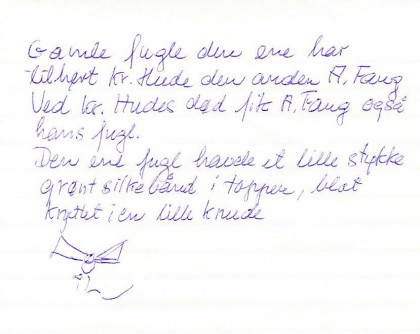 Gamle fugle den ene har
tilhørt Kr. Hude den anden A. Fang
Ved Kr. Hudes død fik A. Fang også
hans fugl.
Den ene fugl havde et lille stykke
grønt silkebånd i toppen, blot
knyttet i en lille knude